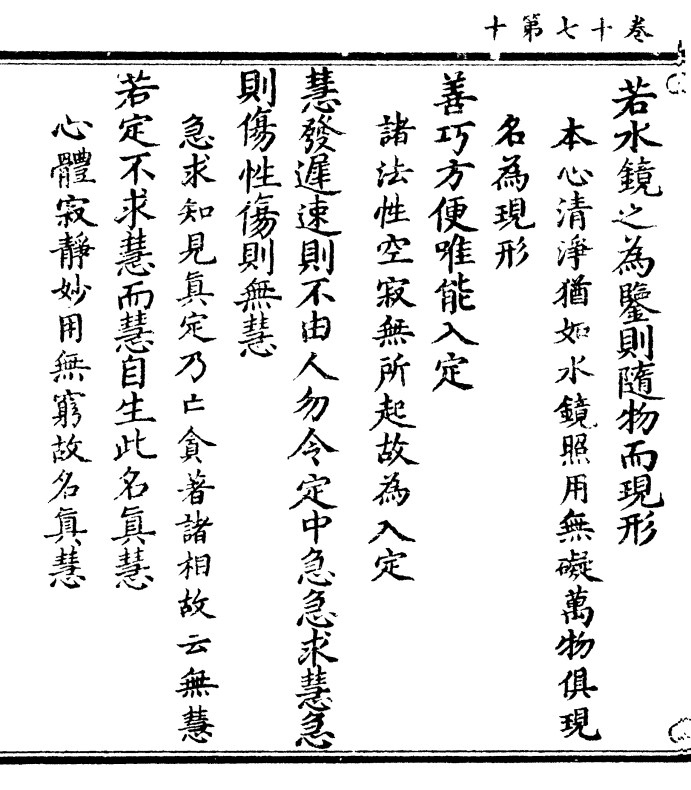 卷十七第十
若水鏡之為鑒則隨物而現形
本心清淨猶如水鏡照用無礙萬物俱現
名為現形
善巧方便唯能入定
諸法性空寂無所起故為入定
慧發遲速則不由人勿令定中急急求慧急
則傷性傷則無慧
急求知見真定乃亡貪著諸相故云無慧
若定不求慧而慧自生此名真慧
心體寂靜妙用無窮故名真慧